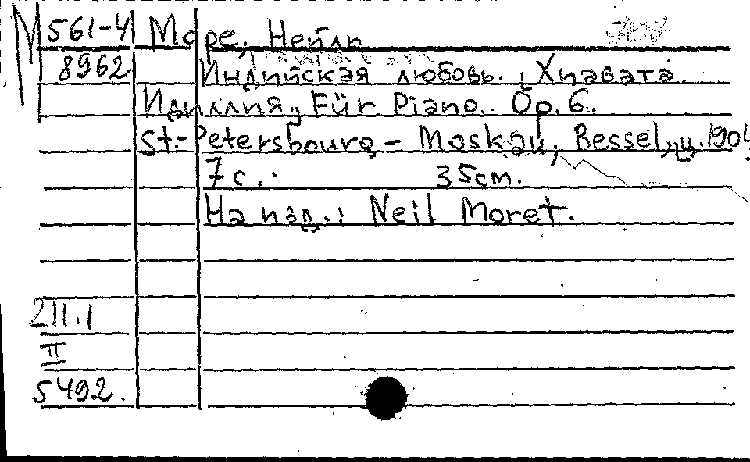 М 561-4 Море, Нейл
8962 Индийская любовь. Хиавата.
Идиллия, Für Piano. Op. 6.
St.-Petersbourg - Moskau, Bessel, ц.
7 с. 35 cm.
На изд.: Neil Moret.
211.1
II
5492.